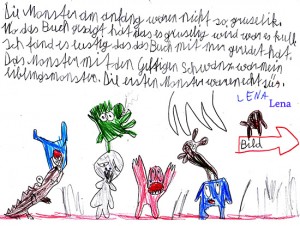 Die Monster am anfang waren nicht so gruselik.
Wo das Buch gesagt hat das es gruselig wird war es kull
Ich fand es lustig das das Buch mit mir geredet hat.
Das Monster mit den Giftigen Schwanz war mein
lieblingsmonster. Die ersten Monster waren echt süs.
LENA
Lena
Bild